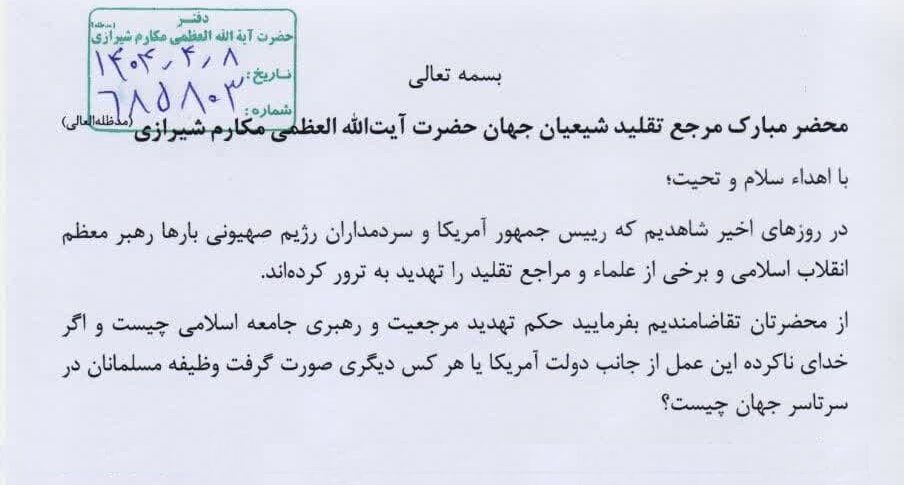 دفتر
حضرت آیة الله العظمی مکارم شیرازی (مدظله)
تاریخ: ۱۴۰۴٫۴٫۸
شماره: ۶۸۵۸۰۳
بسمه تعالی
محضر مبارک مرجع تقلید شیعیان جهان حضرت آیت‌الله العظمی مکارم شیرازی (مدظله‌العالی)
با اهداء سلام و تحیت؛
در روزهای اخیر شاهدیم که رییس جمهور آمریکا و سردمداران رژیم صهیونی بارها رهبر معظم
انقلاب اسلامی و برخی از علماء و مراجع تقلید را تهدید به ترور کرده‌اند.
از محضرتان تقاضامندیم بفرمایید حکم تهدید مرجعیت و رهبری جامعه اسلامی چیست و اگر
خدای ناکرده این عمل از جانب دولت آمریکا یا هر کس دیگری صورت گرفت وظیفه مسلمانان در
سرتاسر جهان چیست؟